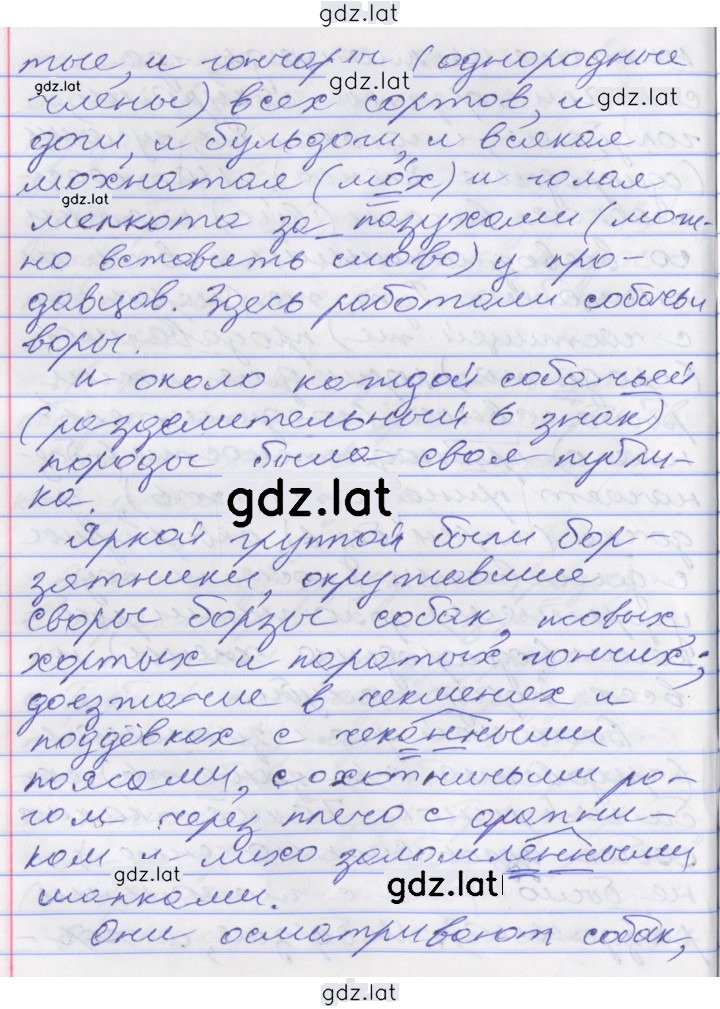 gdz.lat
тые, и гончары (однородные
gdz.lat
gdz.lat
gdz.lat
члены) всех сортов, и
доги, и бульдоги, и всякая
мохнатая (мох) и голая
gdz.lat
мелкота за пазухами (мож-
но вставить слово) у про-
давцов. Здесь работали собачьи
воры.
И около каждой собачьей
(разделительный ь знак)
породы была своя публи-
ка.
gdz.lat
Яркой группой были бор-
зятники, окружавшие
своры борзы собак, товых,
хортых и паратых гончих;
доезжачие в чекменях и
поддёвках с чеканными
поясами, с охотничьими ро-
гом через плечо с арапни-
ком и лихо заломленными
gdz.lat
gdz.lat
шапками.
Они осматривают собак,
gdz.lat